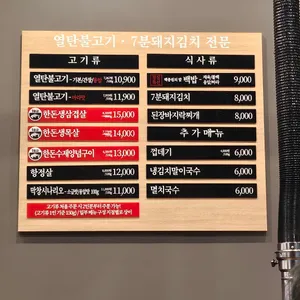 열탄불고기 · 7분돼지김치 전문
고기류
열탄불고기 - 기본/간장/불맛 10,900
열탄불고기 11,900
한돈생삼겹살 15,000
한돈생목살 14,000
한돈수제양념구이 13,000
항정살 12,000
막창시나리오 11,000
고기류 처음 주문 시 2인분부터 주문 가능!
(고기류 1인 기준 150g) / 일부 메뉴 구성 지점별로 상이
식사류
백반 9,000
7분돼지김치 8,000
된장바지락찌개 8,000
추가메뉴
껍데기 6,000
냉김치말이국수 6,000
멸치국수 6,000